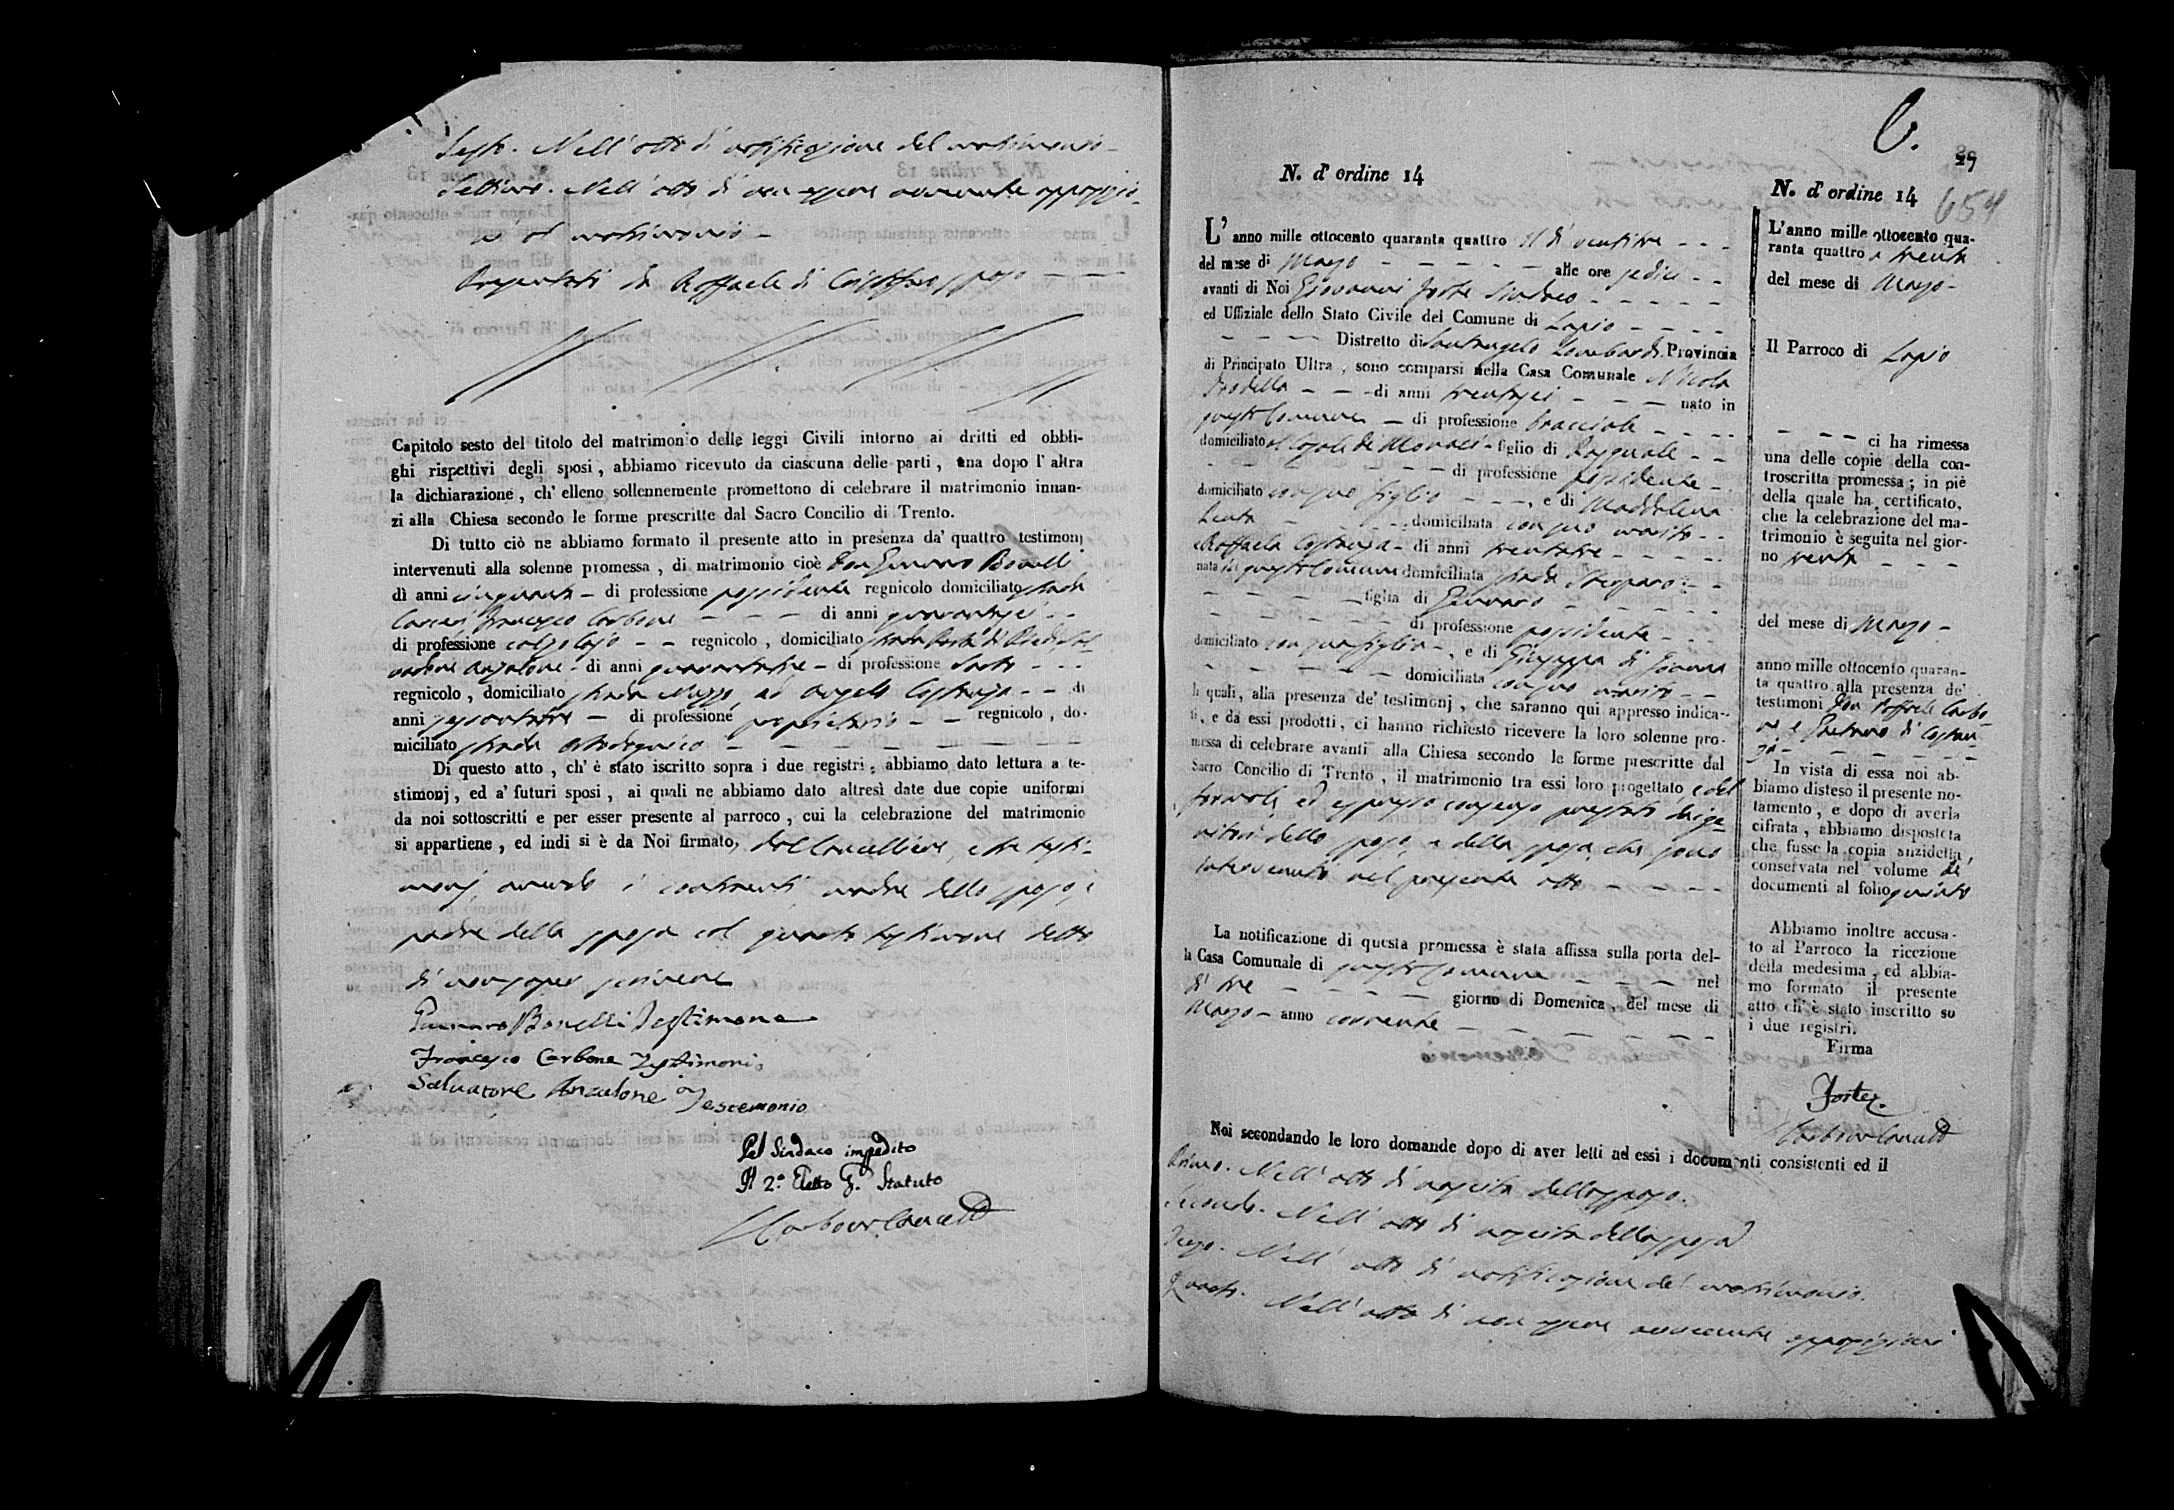 Sesto. Nell' atto di notificazione del matrimonio
Settimo. Nell' atto di non essere avvenuta opposizio-
ne al matrimonio
Presentati da Raffaele di sposo
Capitolo sesto del titolo del matrimonio delle leggi Civili intorno ai dritti ed obbli-
ghi rispettivi degli sposi, abbiamo ricevuto da ciascuna delle parti, una dopo l'altra
la dichiarazione, ch' elleno sollennemente promettono di celebrare il matrimonio innan-
zi alla Chiesa secondo le forme prescritte dal Sacro Concilio di Trento.
Di tutto ciò ne abbiamo formato il presente atto in presenza da' quattro testimonj
intervenuti alla solenne promessa, di matrimonio cioè Don Gennaro Bonelli
di anni cinquanta di professione possidente regnicolo domiciliato strada
Francesco Carbone di anni quarantasei
di professione calzolajo regnicolo, domiciliato strada Porta di
vadore Anzalone di anni quarantatre di professione Sarto
regnicolo, domiciliato strada Mezzo ed Angelo Costanza di
anni sessantatre di professione proprietario regnicolo, do-
miciliato strada
Di questo atto, ch' è stato iscritto sopra i due registri, abbiamo dato lettura a te-
stimonj, ed a' futuri sposi, ai quali ne abbiamo dato altresì date due copie uniformi
da noi sottoscritti e per esser presente al parroco, cui la celebrazione del matrimonio
si appartiene, ed indi si è da Noi firmato, dal Cancelliere, e tre testi-
monj avendo i contraenti, madre dello sposo, i
padre della sposa col quarto testimone detto
di non saper scrivere
Gennaro Bonelli Testimone
Francesco Carbone Testimonio
Salvatore Anzalone Testemonio
Pel Sindaco impedito
Il 2.º Eletto G. Statuto
Carbone Canc
6.
29
654
N. d' ordine 14
L' anno mille ottocento quaranta quattro il dì ventitre
del mese di Marzo alle ore sedici
avanti di Noi Giovanni Forte Sindaco
ed Uffiziale dello Stato Civile del Comune di Lapio
Distretto di Santangelo Lombardi Provincia
di Principato Ultra, sono comparsi nella Casa Comunale Nicola
di anni trentasei nato in
questo Comune di professione bracciale
domiciliato figlio di Pasquale
di professione possidente
domiciliato con suo figlio, e di Maddalena
domiciliata con suo marito
Raffaela Costanza di anni trentatre
nata in questo Comune domiciliata strada
figlia di Gennaro
di professione possidente
domiciliato con sua figlia, e di Giuseppa di
domiciliata con suo marito
li quali, alla presenza de' testimonj, che saranno qui appresso indica-
ti, e da essi prodotti, ci hanno richiesto ricevere la loro solenne pro-
messa di celebrare avanti alla Chiesa secondo le forme prescritte dal
Sacro Concilio di Trento, il matrimonio tra essi loro progettato, e del
formole ed espresso consenso prestato da' ge-
nitori dello sposo, e della sposa, che sono
intervenuti nel presente atto
La notificazione di questa promessa è stata affissa sulla porta del-
la Casa Comunale di questo Comune nel
dì tre giorno di Domenica, del mese di
Marzo anno corrente
N. d' ordine 14
L'anno mille ottocento qua-
ranta quattro a trenta
del mese di Marzo
Il Parroco di Lapio
ci ha rimessa
una delle copie della con-
troscritta promessa; in piè
della quale ha certificato,
che la celebrazione del ma-
trimonio è seguita nel gior-
no trenta
del mese di Marzo
anno mille ottocento quaran-
ta quattro alla presenza de'
testimoni Don Raffaele Carbo-
ne, e Gaetano di Costan-
zo
In vista di essa noi ab-
biamo disteso il presente no-
tamento, e dopo di averla
cifrata, abbiamo disposto
che fusse la copia anzidetta,
conservata nel volume de
documenti al folio quinto
Abbiamo inoltre accusa-
to al Parroco la ricezione
della medesima, ed abbia-
mo formato il presente
atto ch' è stato inscritto su
i due registri.
Firma
Forte
Carbone Canc
Noi secondando le loro domande dopo di aver letti ad essi i documenti consistenti ed il
Primo. Nell' atto di nascita dello sposo.
Secondo. Nell' atto di nascita della sposa
Terzo. Nell' atto di notificazione del matrimonio.
Quarto. Nell' atto di non essere avvenute opposizioni